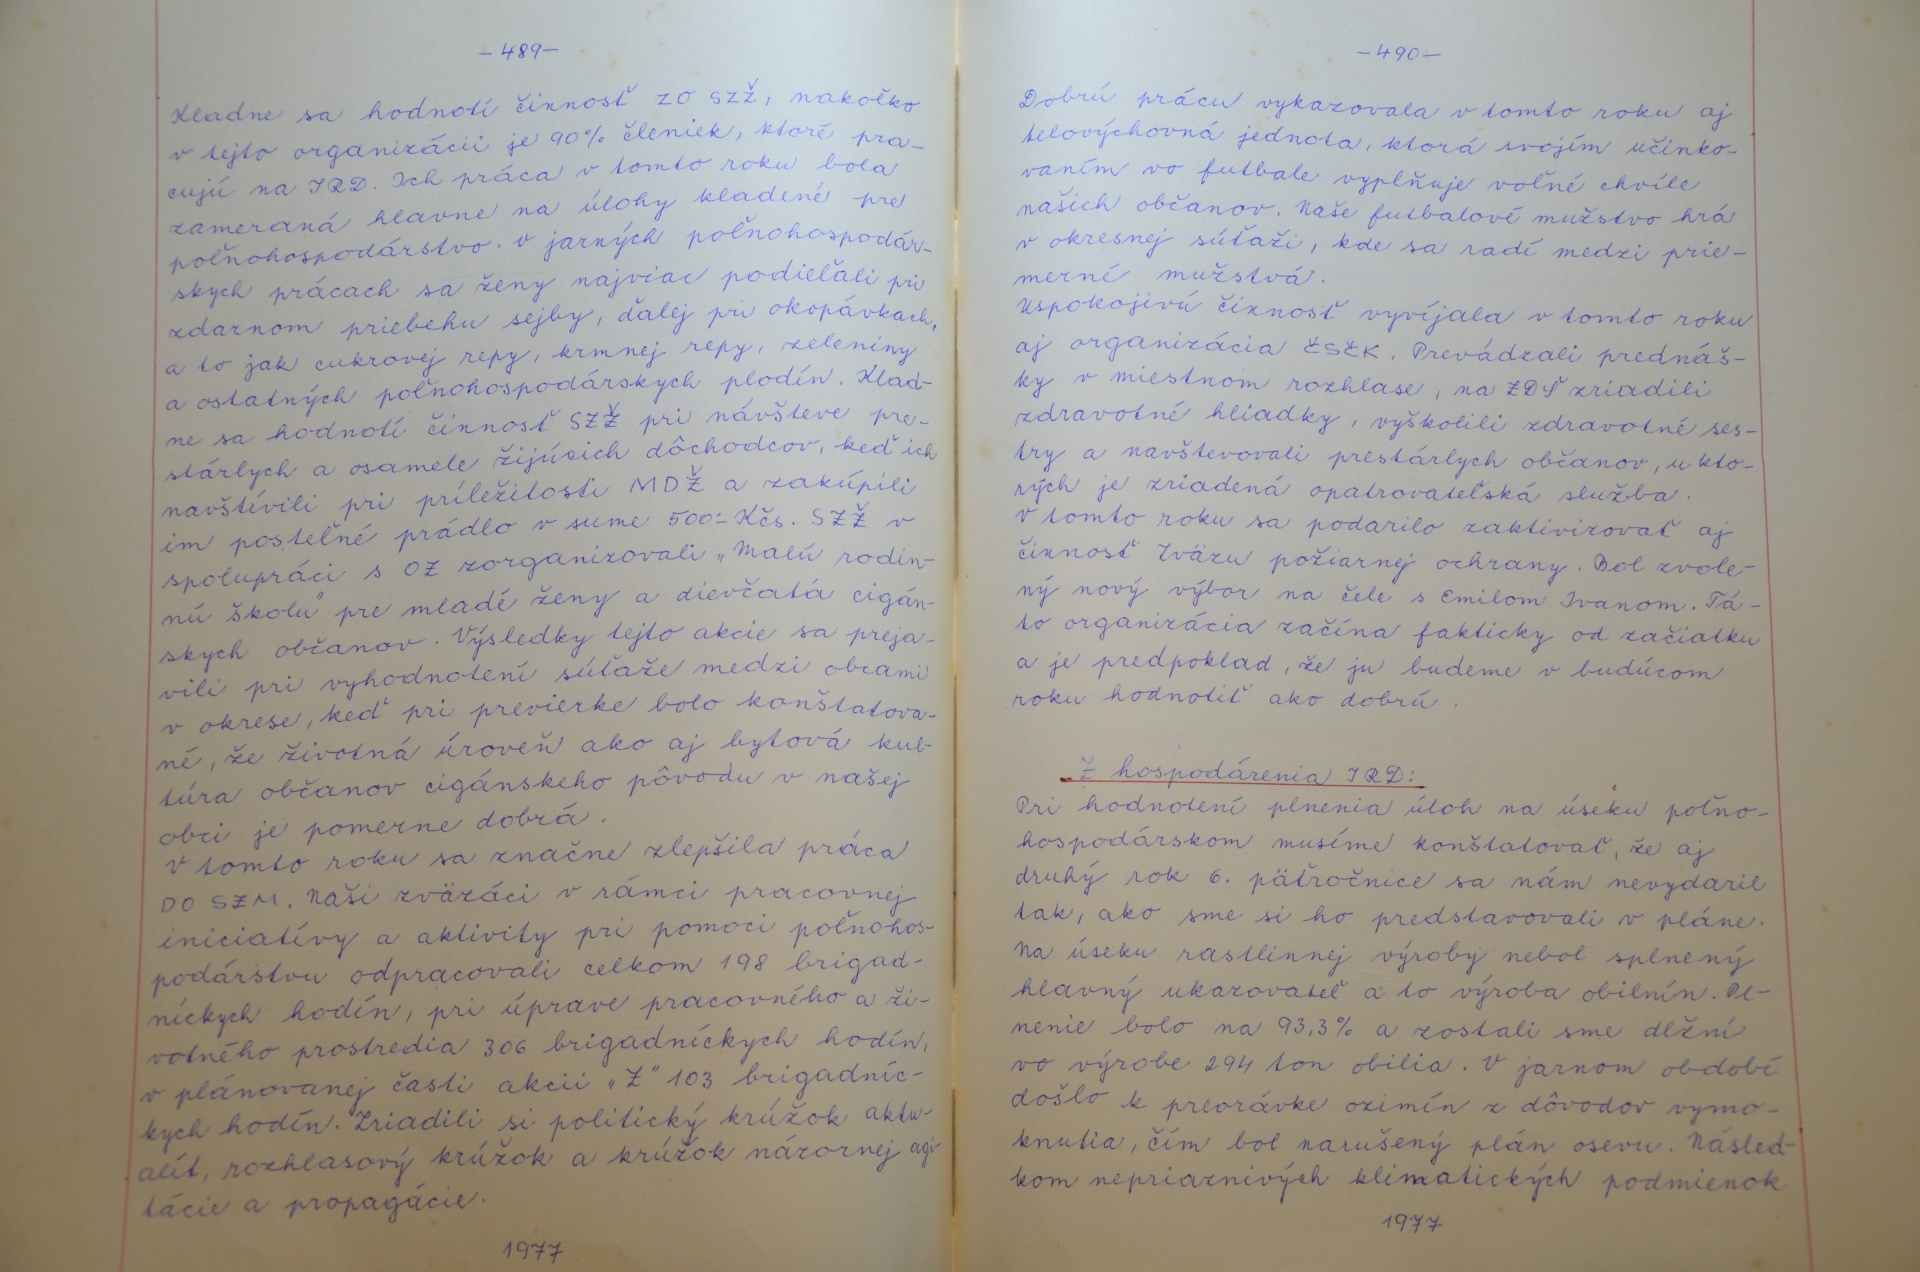 -489-
Kladne sa hodnotí činnosť ZO SZŽ, nakoľko
v tejto organizácii je 90% členiek, ktoré pra-
cujú na JRD. Ich práca v tomto roku bola
zameraná hlavne na úlohy kladené pre
poľnohospodárstvo. V jarných poľnohospodár-
skych prácach sa ženy najviac podieľali pri
zdarnom priebehu sejby, ďalej pri okopávkach,
a to jak cukrovej repy, krmnej repy, zeleniny
a ostatných poľnohospodárskych plodín. Klad-
ne sa hodnotí činnosť SZŽ pri návšteve pre-
stárlych a osamele žijúcich dôchodcov, keď ich
navštívili pri príležitosti MDŽ a zakúpili
im posteľné prádlo v sume 500.- Kčs. SZŽ v
spolupráci s OZ zorganizovali „Malú rodin-
nú školu" pre mladé ženy a dievčatá cigán-
skych občanov. Výsledky tejto akcie sa preja-
vili pri vyhodnotení súťaže medzi obcami
v okrese, keď pri previerke bolo konštatova-
né, že životná úroveň ako aj bytová kul-
túra občanov cigánskeho pôvodu v našej
obci je pomerne dobrá.
V tomto roku sa značne zlepšila práca
DO SZM. Naši zväzáci v rámci pracovnej
iniciatívy a aktivity pri pomoci poľnohos-
podárstvu odpracovali celkom 198 brigad-
níckych hodín, pri úprave pracovného a ži-
votného prostredia 306 brigadníckych hodín,
v plánovanej časti akcii „Z" 103 brigadníc-
kych hodín. Zriadili si politický krúžok aktu-
alít, rozhlasový krúžok a krúžok názornej agi-
tácie a propagácie.
1977
-490-
Dobrú prácu vykazovala v tomto roku aj
telovýchovná jednota, ktorá svojím učinko-
vaním vo futbale vyplňuje voľné chvíle
našich občanov. Naše futbalové mužstvo hrá
v okresnej súťaži, kde sa radí medzi prie-
merné mužstvá.
Uspokojivú činnosť vyvíjala v tomto roku
aj organizácia ČSČK. Prevádzali prednáš-
ky v miestnom rozhlase, na ZDŠ zriadili
zdravotné hliadky, vyškolili zdravotné ses-
try a navštevovali prestárlych občanov, u kto-
rých je zriadená opatrovateľská služba.
V tomto roku sa podarilo zaktivizovať aj
činnosť Zväzu požiarnej ochrany. Bol zvole-
ný nový výbor na čele s Emilom Ivanom. Tá-
to organizácia začína fakticky od začiatku
a je predpoklad, že ju budeme v budúcom
roku hodnotiť ako dobrú.
Z hospodárenia JRD:
Pri hodnotení plnenia úloh na úseku poľno-
hospodárskom musíme konštatovať, že aj
druhý rok 6. päťročnice sa nám nevydaril
tak, ako sme si ho predstavovali v pláne.
Na úseku rastlinnej výroby nebol splnený
hlavný ukazovateľ a to výroba obilnín. Pl-
nenie bolo na 93,3% a zostali sme dlžní
vo výrobe 294 ton obilia. V jarnom období
došlo k preorávke ozimín z dôvodov vymo-
knutia, čím bol narušený plán osevu. Násled-
kom nepriaznivých klimatických podmienok
1977